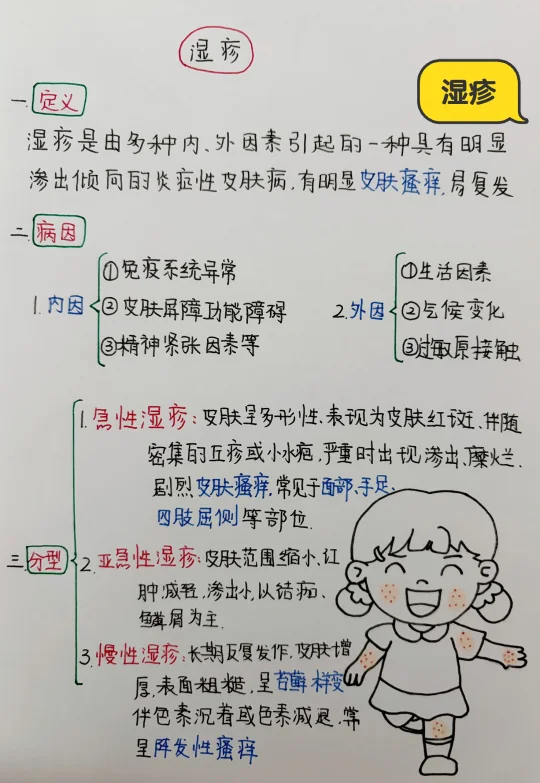 湿疹
湿疹
一.定义
湿疹是由多种内、外因素引起的一种具有明显
渗出倾向的炎症性皮肤病,有明显皮肤瘙痒,易复发
二.病因
1.内因
①免疫系统异常
②皮肤屏障功能障碍
③精神紧张因素等
2.外因
①生活因素
②气候变化
③过敏原接触
三.分型
1.急性湿疹:皮肤呈多形性、表现为皮肤红斑、伴随
密集的丘疹或小水疱,严重时出现渗出、糜烂、
剧烈皮肤瘙痒,常见于面部、手足、
四肢屈侧等部位.
2.亚急性湿疹:皮肤范围缩小、红
肿减轻、渗出少,以结痂、
鳞屑为主.
3.慢性湿疹:长期反复发作、皮肤增
厚,表面粗糙,呈苔藓样变
伴色素沉着或色素减退,常
呈阵发性瘙痒